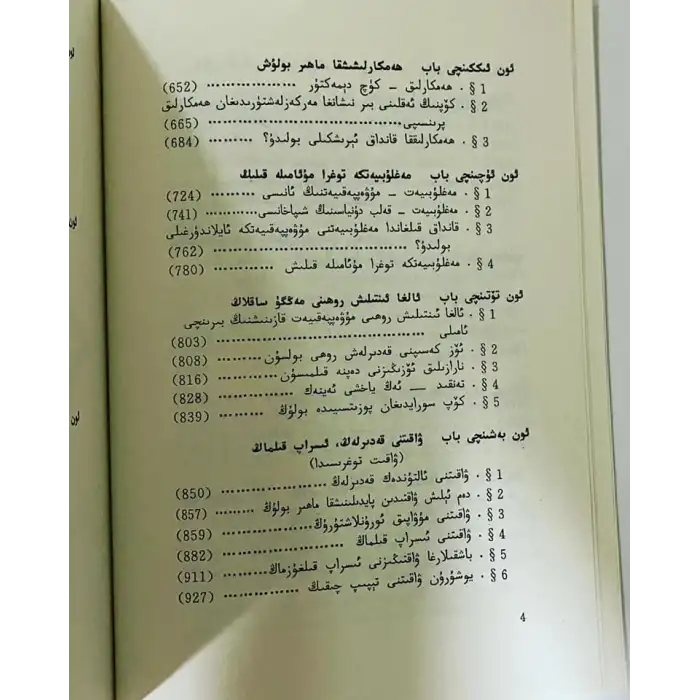 ئون ئىككىنچى باب ھەمكارلىشىشقا ماھىر بولۇش
§ 1 . ھەمكارلىق — كۈچ دېمەكتۇر .................. (652)
§ 2 . كۆپنىڭ ئەقلىنى بىر نىشانغا مەركەزلەشتۈرىدىغان ھەمكارلىق
پرىنسىپى ........................................ (665)
§ 3 . ھەمكارلىققا قانداق ئېرىشكىلى بولىدۇ؟ ......... (684)
ئون ئۈچىنچى باب مەغلۇبىيەتكە توغرا مۇئامىلە قىلىڭ
§ 1 . مەغلۇبىيەت — مۇۋەپپەقىيەتنىڭ ئانىسى .......... (724)
§ 2 . مەغلۇبىيەت — قەلب دۇنياسىنىڭ شىپاخانىسى............ (741)
§ 3 . قانداق قىلغاندا مەغلۇبىيەتنى مۇۋەپپەقىيەتكە ئايلاندۇرغىلى
بولىدۇ؟ ........................................ (762)
§ 4 . مەغلۇبىيەتكە توغرا مۇئامىلە قىلىش ............... (780)
ئون تۆتىنچى باب ئالغا ئىنتىلىش روھىنى مەڭگۈ ساقلاڭ
§ 1 . ئالغا ئىنتىلىش روھىي مۇۋەپپەقىيەت قازىنىشنىڭ بىرىنچى
ئامىلى ........................................ (803)
§ 2 . ئۆز كەسپىنى قەدىرلەش روھى بولسۇن ......... (808)
§ 3 . نارازىلىق ئۆزىڭىزنى دەپنە قىلمىسۇن ............ (816)
§ 4 . تەنقىد — ئەڭ ياخشى ئەينەك .................. (828)
§ 5 . كۆپ سورايدىغان پوزىتسىيىدە بولۇڭ ......... (839)
ئون بەشىنچى باب ۋاقىتنى قەدىرلەڭ، ئىسراپ قىلماڭ
(ۋاقىت توغرىسىدا)
§ 1 . ۋاقىتنى ئالتۇندەك قەدىرلەڭ ..................... (850)
§ 2 . دەم ئېلىش ۋاقتىدىن پايدىلىنىشقا ماھىر بولۇڭ ......... (857)
§ 3 . ۋاقىتنى مۇۋاپىق ئورۇنلاشتۇرۇڭ ............... (859)
§ 4 . ۋاقىتنى ئىسراپ قىلماڭ ........................ (882)
§ 5 . باشقىلارغا ۋاقتىڭىزنى ئىسراپ قىلغۇزماڭ ......... (911)
§ 6 . يوشۇرۇن ۋاقىتنى تېپىپ چىقىڭ ............... (927)
4